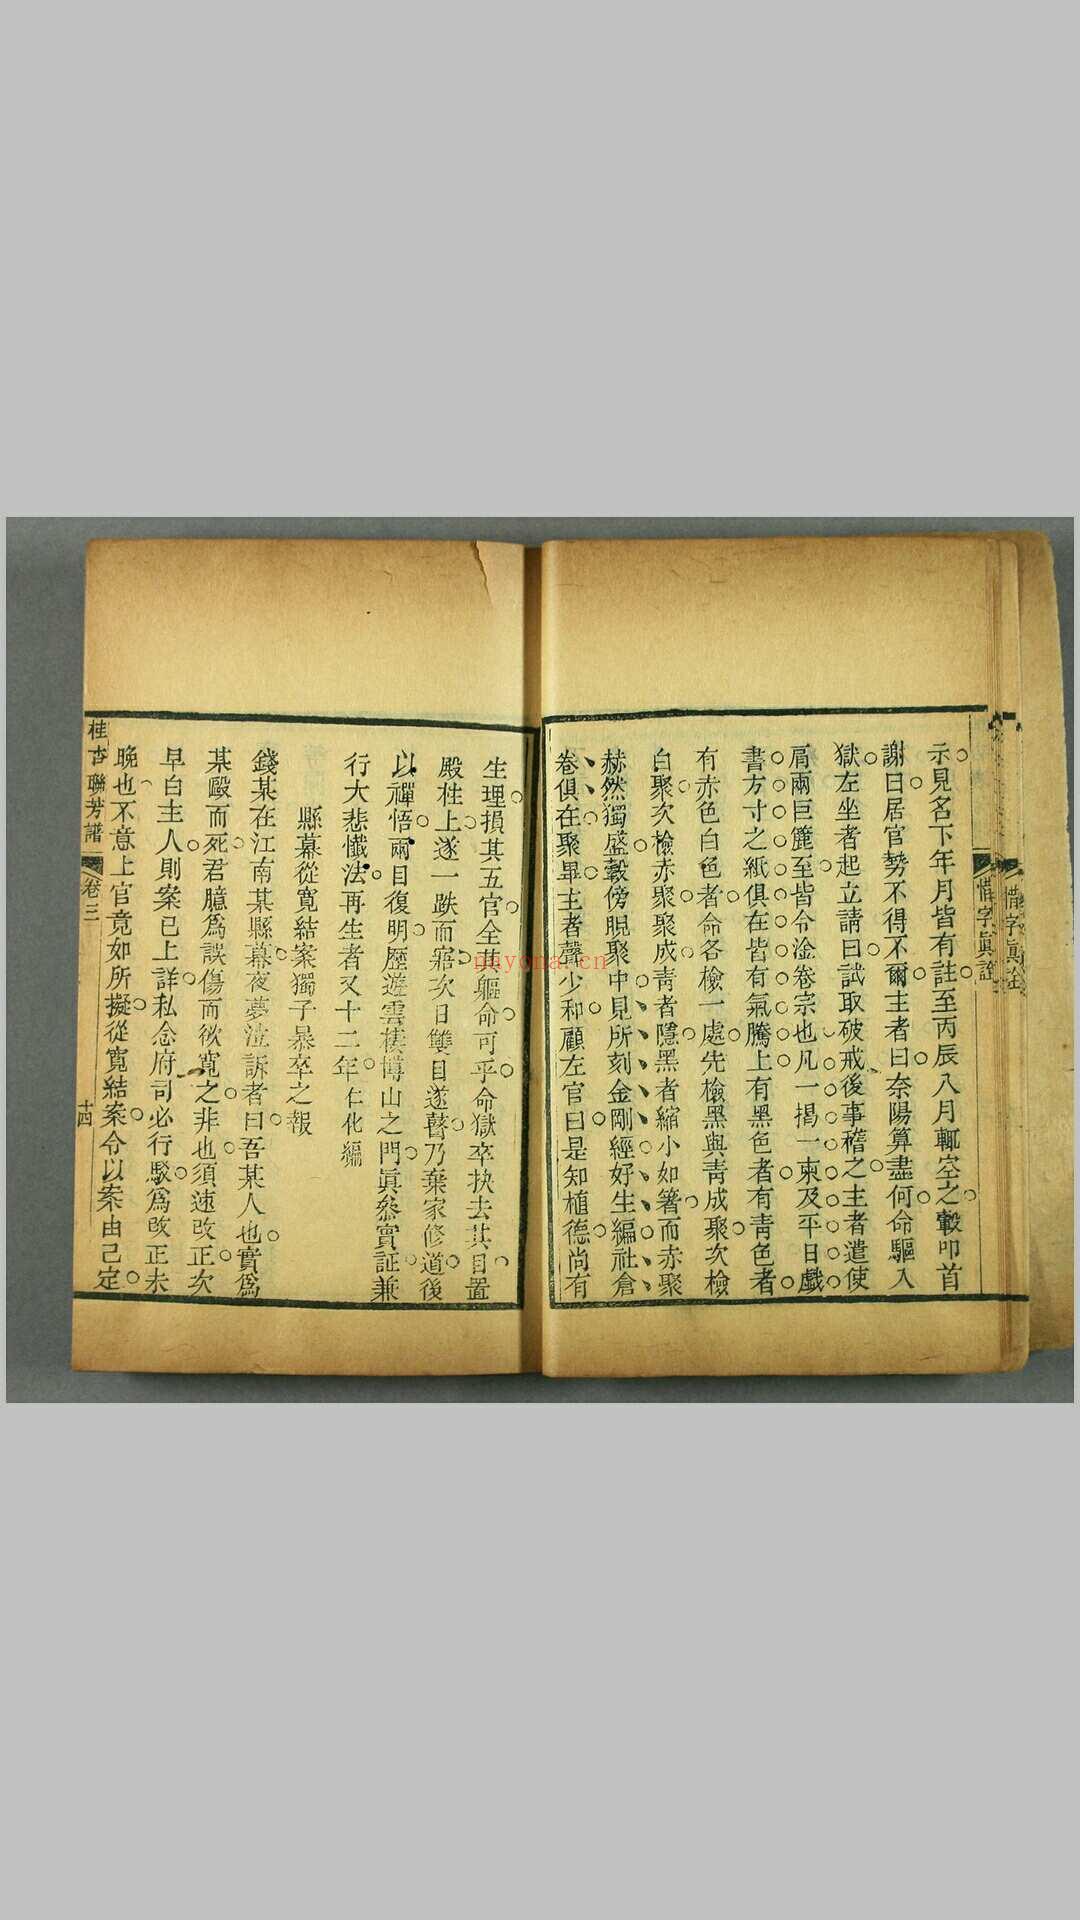 惜字眞詮
惜字眞詮
示見名下年月皆有註至丙辰八月輒空之轂叩首
謝曰居官勢不得不爾主者曰奈陽算盡何命驅入
獄左坐者起立請曰試取破戒後事稽之主者遣使
肩兩巨簏至皆令淦卷宗也凡一揭一柬及平日戲
書方寸之紙俱在皆有氣騰上有黑色者有青色者
有赤色白色者命各檢一處先檢黑與青成聚次檢
白聚次檢赤聚聚成青者隱黑者縮小如箸而赤聚
赫然獨盛轂傍睨聚中見所刻金剛經好生編社倉
卷俱在聚畢主者聲少和顧左官曰是知植德尚有
生理損其五官全其軀命可乎命獄卒抉去其目置
殿柱上遂一跌而寤次日雙目遂瞽乃棄家修道後
以禪悟兩目復明歷遊雲棲博山之門眞叅實証兼
行大悲懺法再生者又十二年仁化編
縣幕從寬結案獨子暴卒之報
錢某在江南某縣幕夜夢泣訴者曰吾某人也實爲
某毆而死君臆爲誤傷而欲寬之非也須速改正次
早白主人則案已上詳私念府司必行駁爲改正未
晚也不意上官竟如所擬從寬結案令以案由己定
桂杏聯芳譜
卷三
十四
nayona.cn